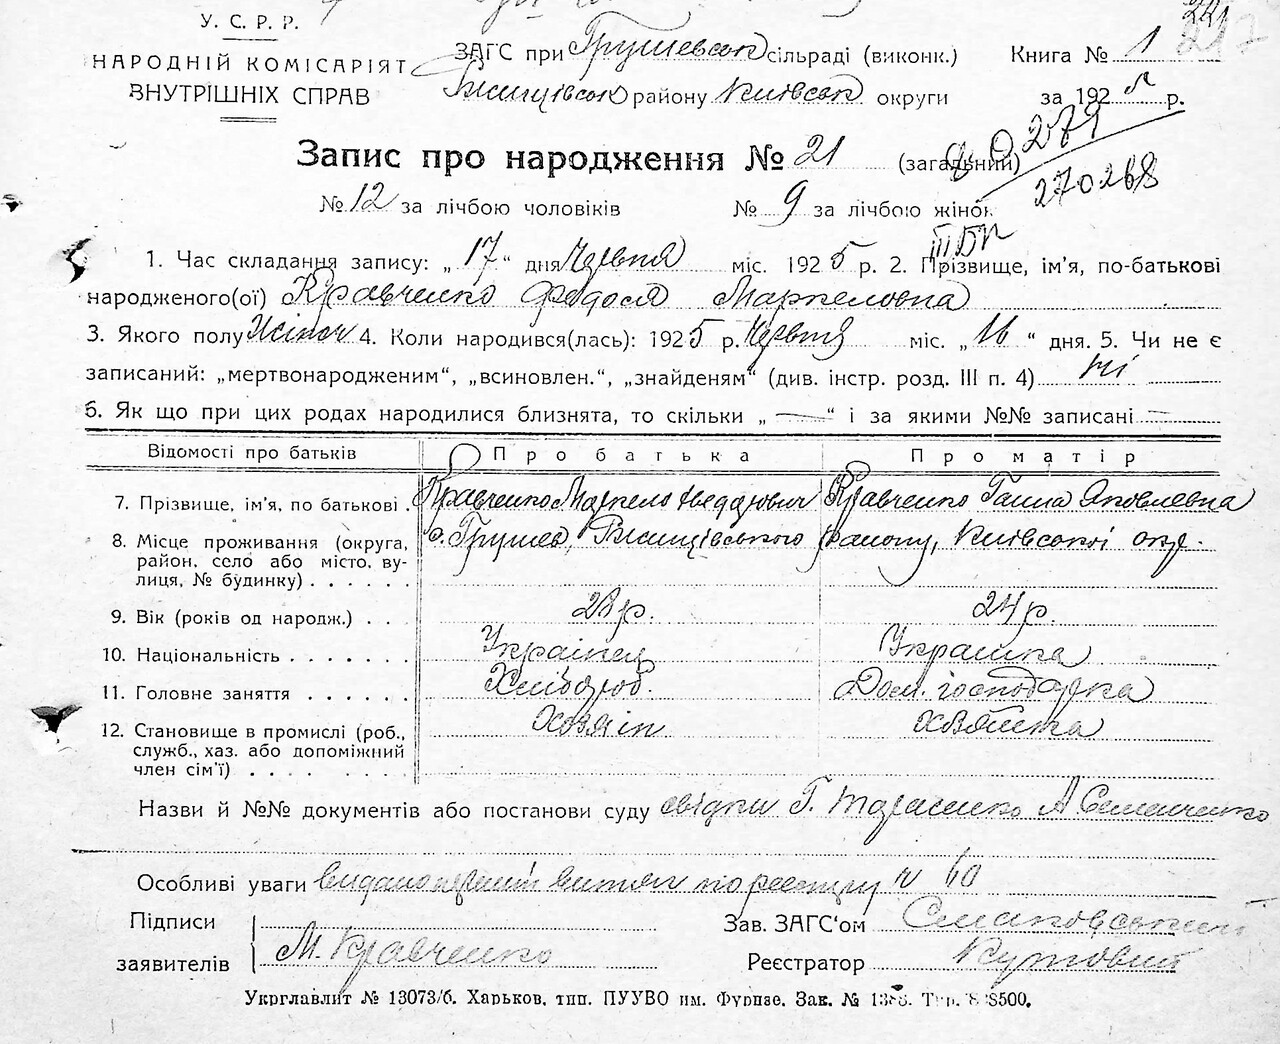 У. С. Р. Р.
НАРОДНІЙ КОМІСАРІЯТ
ВНУТРІШНІХ СПРАВ
ЗАГС при Грушевськ сільраді (виконк.) Книга № 1
Ржищівськ району Київськ округи за 192 р.
Запис про народження № 21 (загальний)
271
270268
№ 12 за лічбою чоловіків № 9 за лічбою жінок
III БП
1. Час складання запису: „17“ дня Червня міс. 1925 р. 2. Прізвище, ім'я, по-батькові
народженого(ої) Кравченко Федося Маркеловна
3. Якого полу Жіноч 4. Коли народився(лась): 1925 р. Червня міс. „16“ дня. 5. Чи не є
записаний: „мертвонародженим“, „всиновлен.“, „знайденям“ (див. інстр. розд. III п. 4) ні
6. Як що при цих родах народилися близнята, то скільки „ — “ і за якими №№ записані —
Відомості про батьків Про батька Про матір
7. Прізвище, ім'я, по батькові . Кравченко Маркело Кравченко Ганна Яковлевна
8. Місце проживання (округа, с. Грушев, Ржищівського району, Київської окр.
район, село або місто, ву-
лиця, № будинку) . . . . . .
9. Вік (років од народж.) . . . 28 р. 24 р.
10. Національність . . . . . . . Українец Украинка
11. Головне заняття . . . . . . Хлібороб. Дом. господарка
12. Становище в промислі (роб., Хозяін Хозяйка
служб., хаз. або допоміжний
член сім'ї) . . . . . . . .
Назви й №№ документів або постанови суду свідки Г. Тарасенко А. Семенченко
Особливі уваги видано перший витяг по реестру № 60
Підписи Зав. ЗАГС'ом
заявителів М. Кравченко Реєстратор Кутовий
Укрглавліт № 13073/б. Харьков, тип. ПУУВО им. Фрунзе. Зак. №